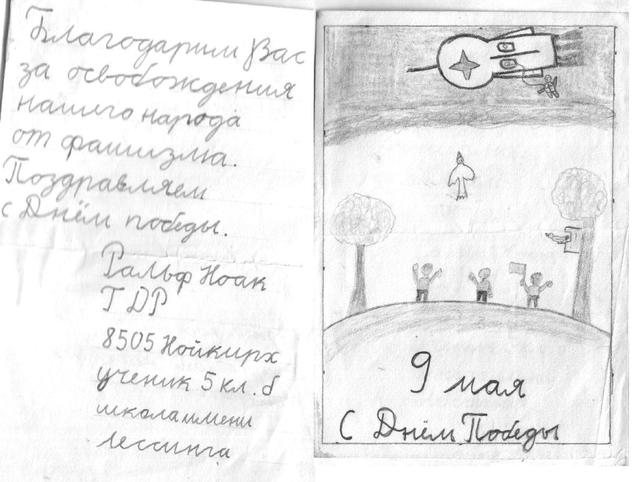 Благодарим Вас
за освобождения
нашего народа
от фашизма.
Поздравляем
с Днём победы.
Ральф Ноак
ГДР
8505 Нойкирх
ученик 5 кл. б
школа имени
Лессинга
9 мая
С Днём Победы